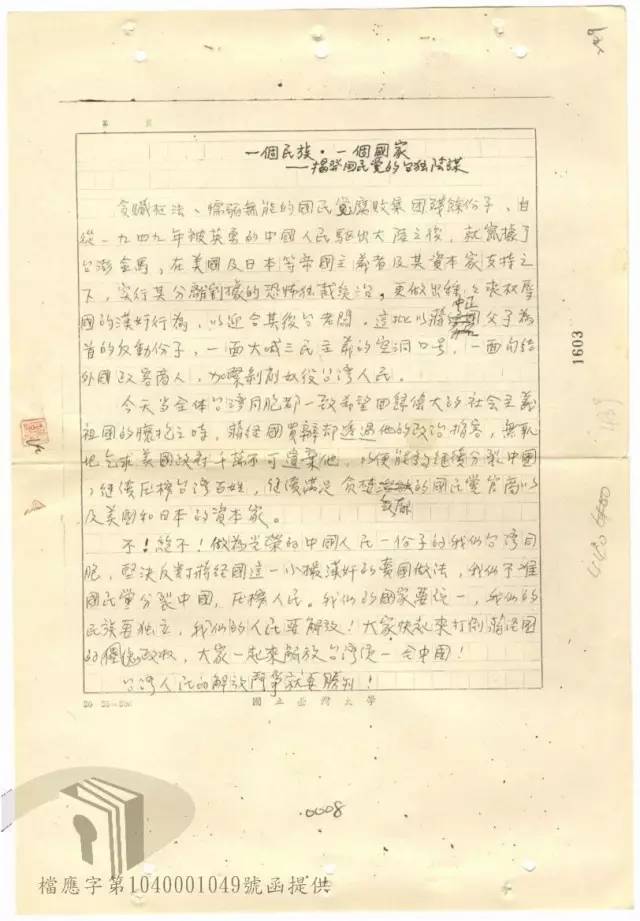 第 頁
一個民族·一個國家
——揭發国民党的台独陰謀
貪贓枉法、懦弱無能的國民黨腐敗集团殘餘份子，自
從一九四九年被英勇的中國人民驅出大陸之後，就竄據了
台澎金馬，在美國及日本等帝国主義者及其資本家支持之
下，实行其分離割據的恐怖独裁統治。更做出種々喪权辱
國的漢奸行為，以迎合其後台老闆。這批以蔣中正父子為
首的反動份子，一面大喊三民主義的空洞口号，一面勾结
外國政客商人，加緊剝削奴役台湾人民。
今天当全体台湾同胞都一致希望回歸偉大的社会主義
祖國的懷抱之時，蔣经國買辦却透過他的政治掮客，無恥
地乞求美國政府千萬不可遺棄他，以便能夠继續分裂中國
，继續压榨台湾百姓，继續滿足貪婪的國民党官商以
及美國和日本的資本家。
不！絕不！做為光榮的中國人民一份子的我们台湾同
胞，堅決反对蔣经國這一小撮漢奸的賣國做法，我们不准
國民党分裂中國，压榨人民。我们的國家要统一，我们的
民族要独立，我们的人民要解放！大家快起來打倒蔣经國
的傀儡政权，大家一起來解放台湾统一全中國！
台湾人民的解放鬥爭就要勝利！
國立臺灣大學
1603
0008
檔應字第1040001049號函提供